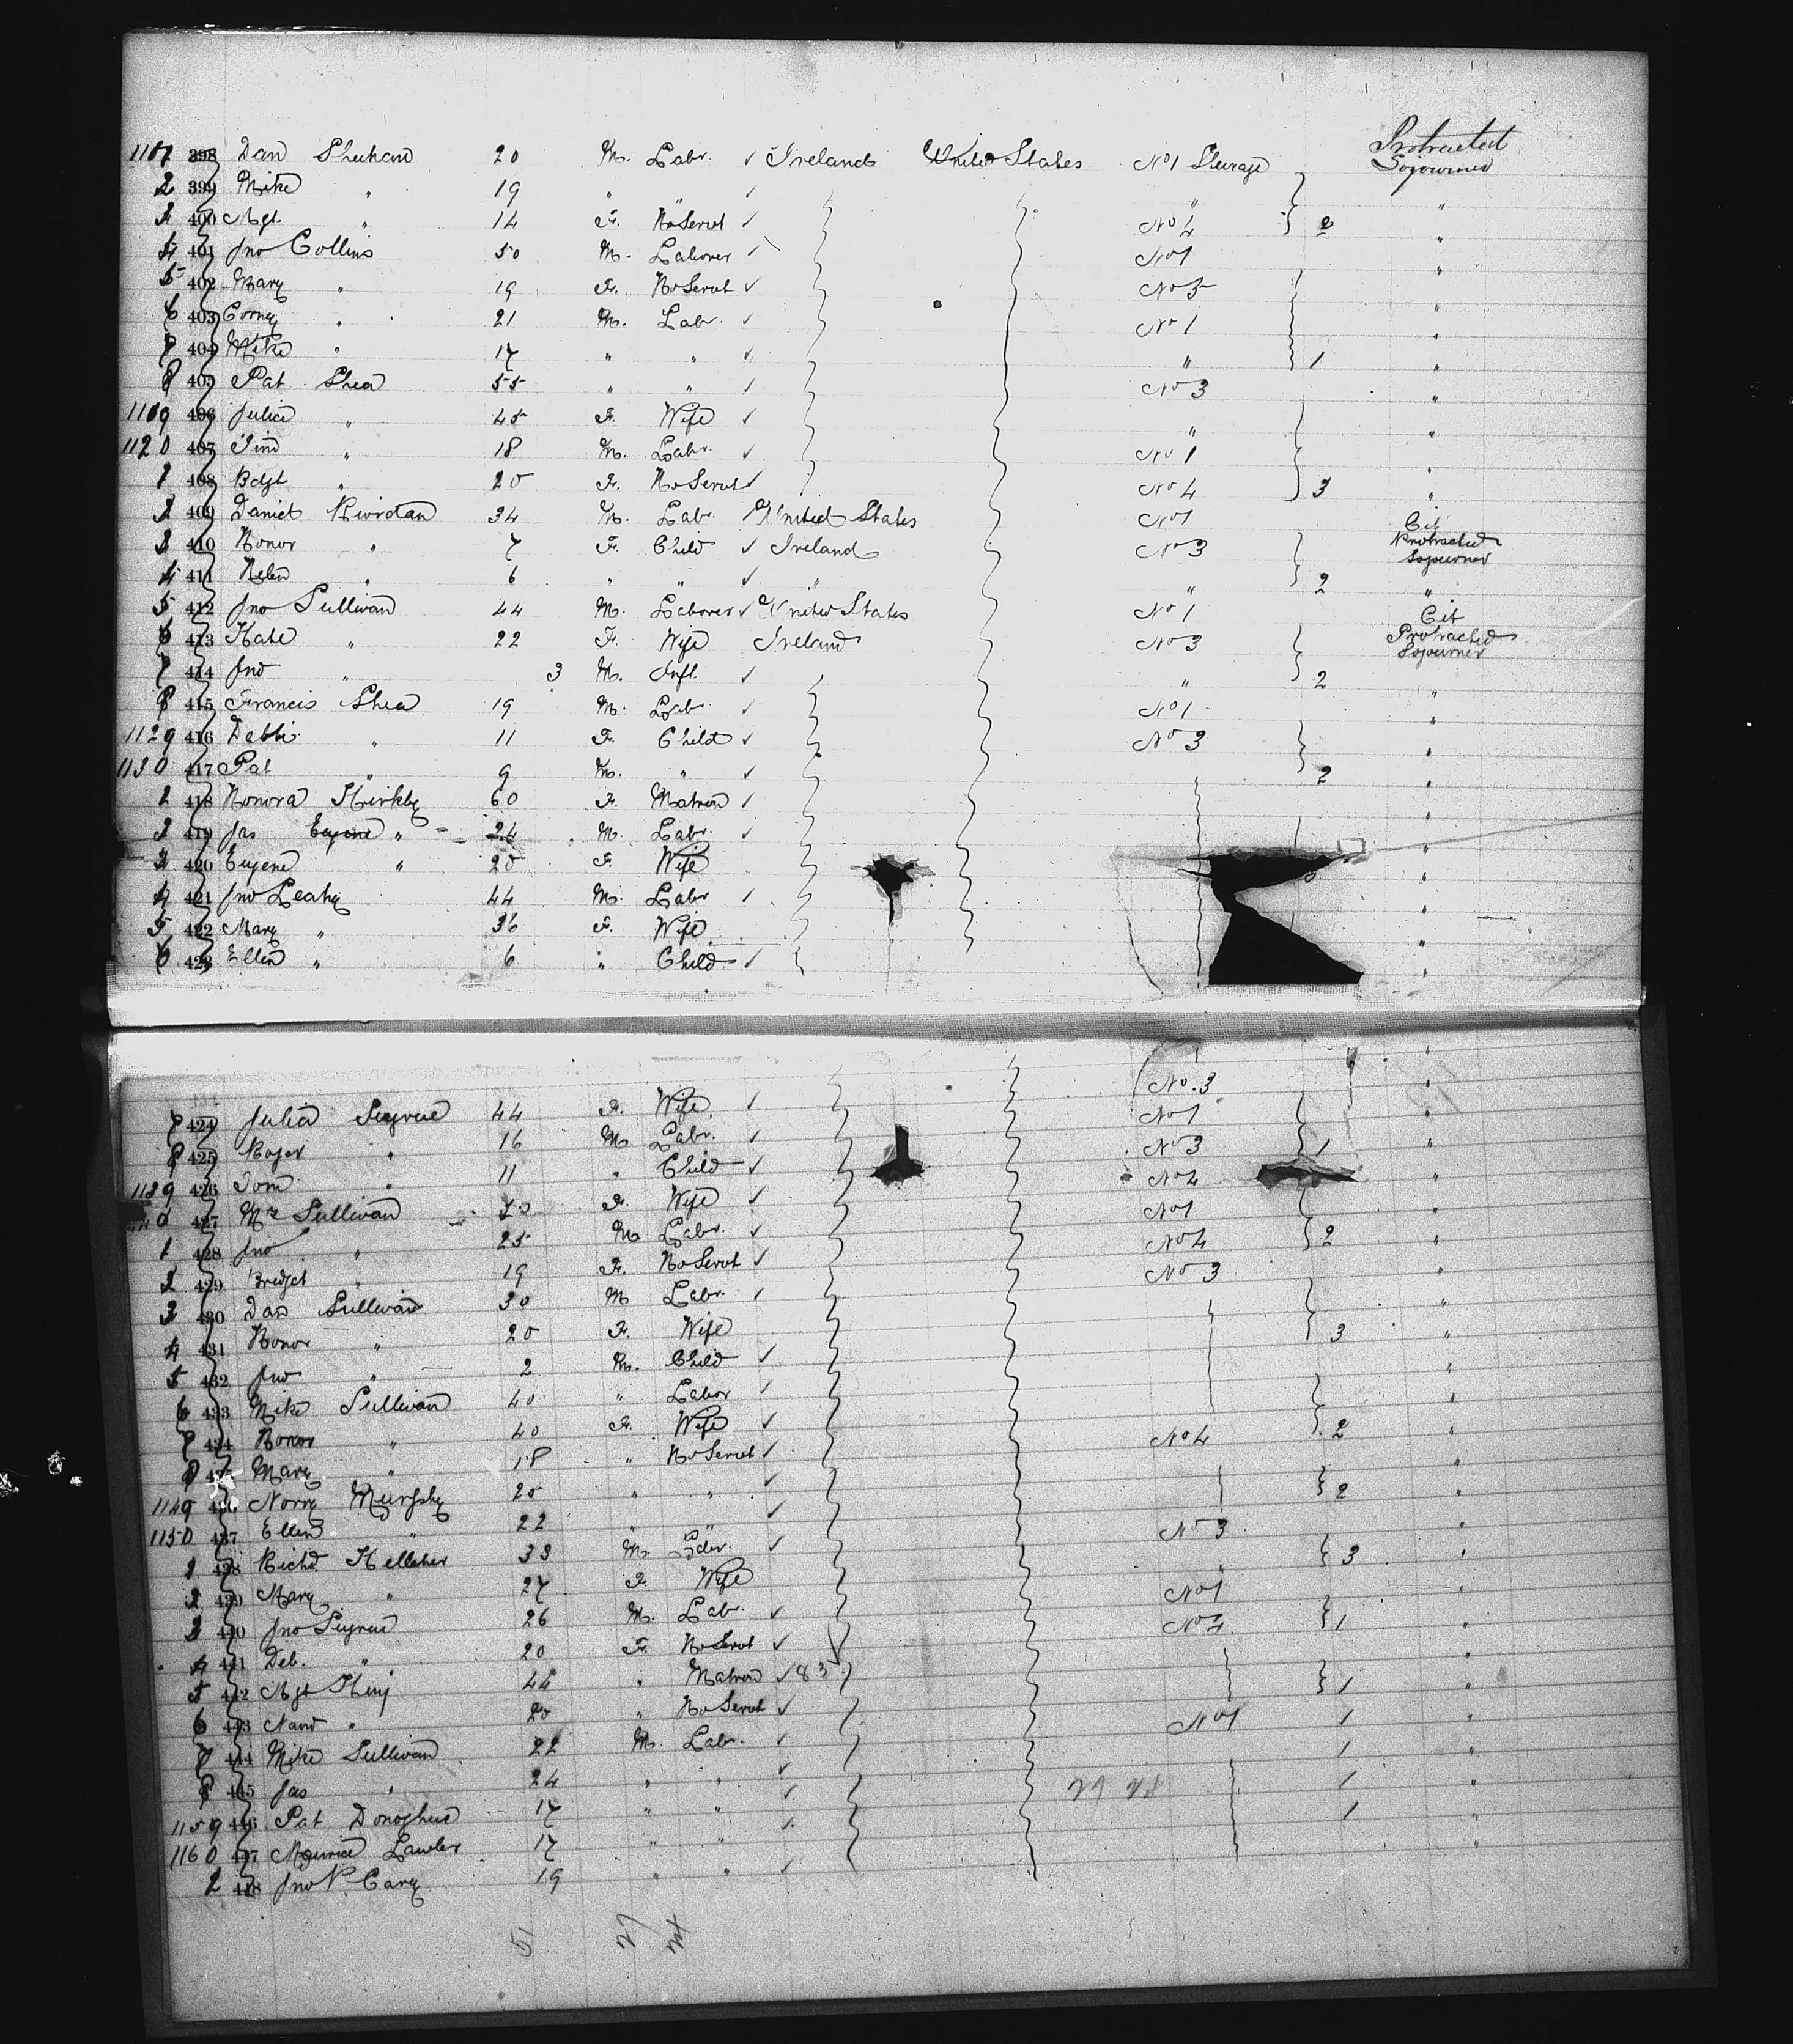 Protracted
398 Dan Sheehan 20 M. Labr. ✓ Ireland United States No 1 Steerage Sojourner
2 399 Mike " 19 " " ✓ " "
3 400 Mgt. " 14 F. HoServt ✓ No 4 2 "
4 401 Jno Collins 50 M. Laborer ✓ No 1 "
5 402 Mary " 19 F. HoServt ✓ No 3 "
6 403 Corny " 21 M. Lab. ✓ No 1 "
7 404 Mike " 17 " " ✓ " 1 "
8 405 Pat Shea 55 " " ✓ No 3 "
406 Julia " 45 F. Wife ✓ " "
1120 407 Tim " 18 M. Labr. ✓ No 1 "
1 408 Bdgt " 20 F. HoServt ✓ No 4 3 "
2 409 Daniel Riordan 34 M. Labr. United States No 1 Cit
3 410 Honor " 7 F. Child ✓ Ireland No 3 Protracted Sojourner
4 411 Helen " 6 " " ✓ " " 2 "
5 412 Jno Sullivan 44 M. Laborer ✓ United States No 1 Cit
6 413 Kate " 22 F. Wife Ireland No 3 Protracted Sojourner
7 414 Jno " 3 M. Inft. ✓ " 2 "
8 415 Francis Shea 19 M. Labr. ✓ No 1 "
1129 416 Debbi " 11 F. Child ✓ No 3 "
1130 417 Pat " 9 M. " ✓ 2 "
418 Honora Kirkby 60 F. Matron ✓ "
2 419 Jas " 24 M. Labr. ✓ "
3 420 Eugene " 20 F. Wife "
4 421 Jno Leahy 44 M. Labr ✓ "
5 422 Mary " 36 F. Wife "
6 423 Ellen " 6 " Child ✓ "
No. 3
7 424 Julia 44 F. Wife ✓ No 1 "
8 425 Roger " 16 M Labr. ✓ No 3 1 "
1139 426 Tom " 11 " Child ✓ No 4 "
427 Sullivan F. Wife ✓ No 1 "
1 428 Jno " 25 M Labr. ✓ No 4 2 "
2 429 Bridget " 19 F. HoServt ✓ No 3 "
3 430 Dan Sullivan 30 M Labr. ✓ "
4 431 Honor " 20 F. Wife 3 "
5 432 Jno " 2 M. Child ✓ "
6 433 Mike Sullivan 40 " Labor ✓ "
7 434 Honor " 40 F. Wife ✓ No 4 2 "
8 Mary " 18 " HoServt ✓ "
1149 436 Norry Murphy 20 " " ✓ 2 "
1150 437 Ellen " 22 " " ✓ No 3 "
438 Richd Kelleher 33 M ✓ 3 "
2 439 Mary " 27 F. Wife No 1 "
3 440 Jno 26 M. Labr. ✓ No 4 1 "
4 441 Deb. " 20 F. HoServt ✓ "
5 442 Mgt 44 " Matron ✓ 83 1 "
6 443 " 20 " HoServt ✓ No 1 1 "
7 444 Mike Sullivan 22 M. Labr. ✓ 1 "
8 445 Jas " 24 " " ✓ 1 "
1159 446 Pat Donoghue 17 " " ✓ 1 "
1160 447 Maurice Lawlor 17 " " "
448 Jno P. Cary 19 " " ✓
51 27 24